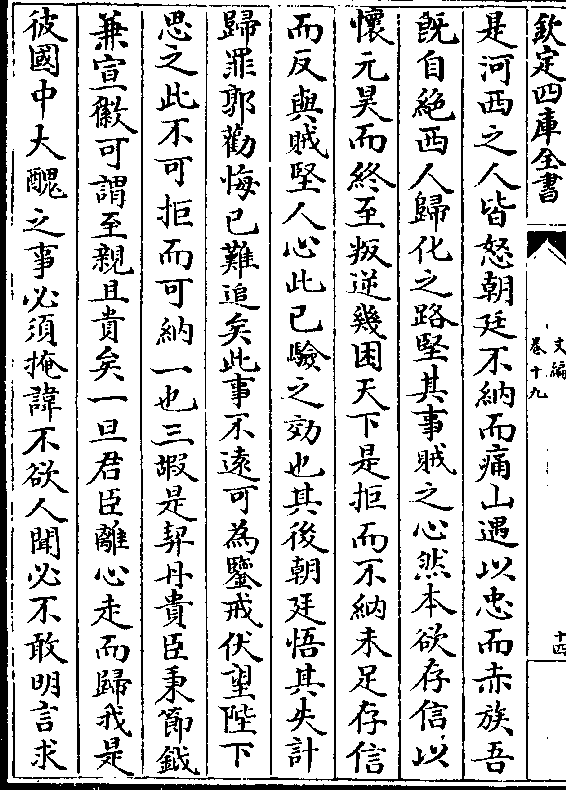 欽定四庫全書
文編
卷十九
十四
是河西之人皆怒朝廷不納而痛山遇以忠而赤族吾
既自絶西人歸化之路堅其事賊之心然本欲存信以
懷元昊而終至叛逆幾困天下是拒而不納未足存信
而反與賊堅人心此已驗之効也其後朝廷悟其失計
歸罪郭勸悔已難追矣此事不逺可為鑒戒伏望陛下
思之此不可拒而可納一也三嘏是契丹貴臣秉節鉞
兼宣徽可謂至親且貴矣一旦君臣離心走而歸我是
彼國中大醜之事必須掩諱不欲人聞必不敢明言求